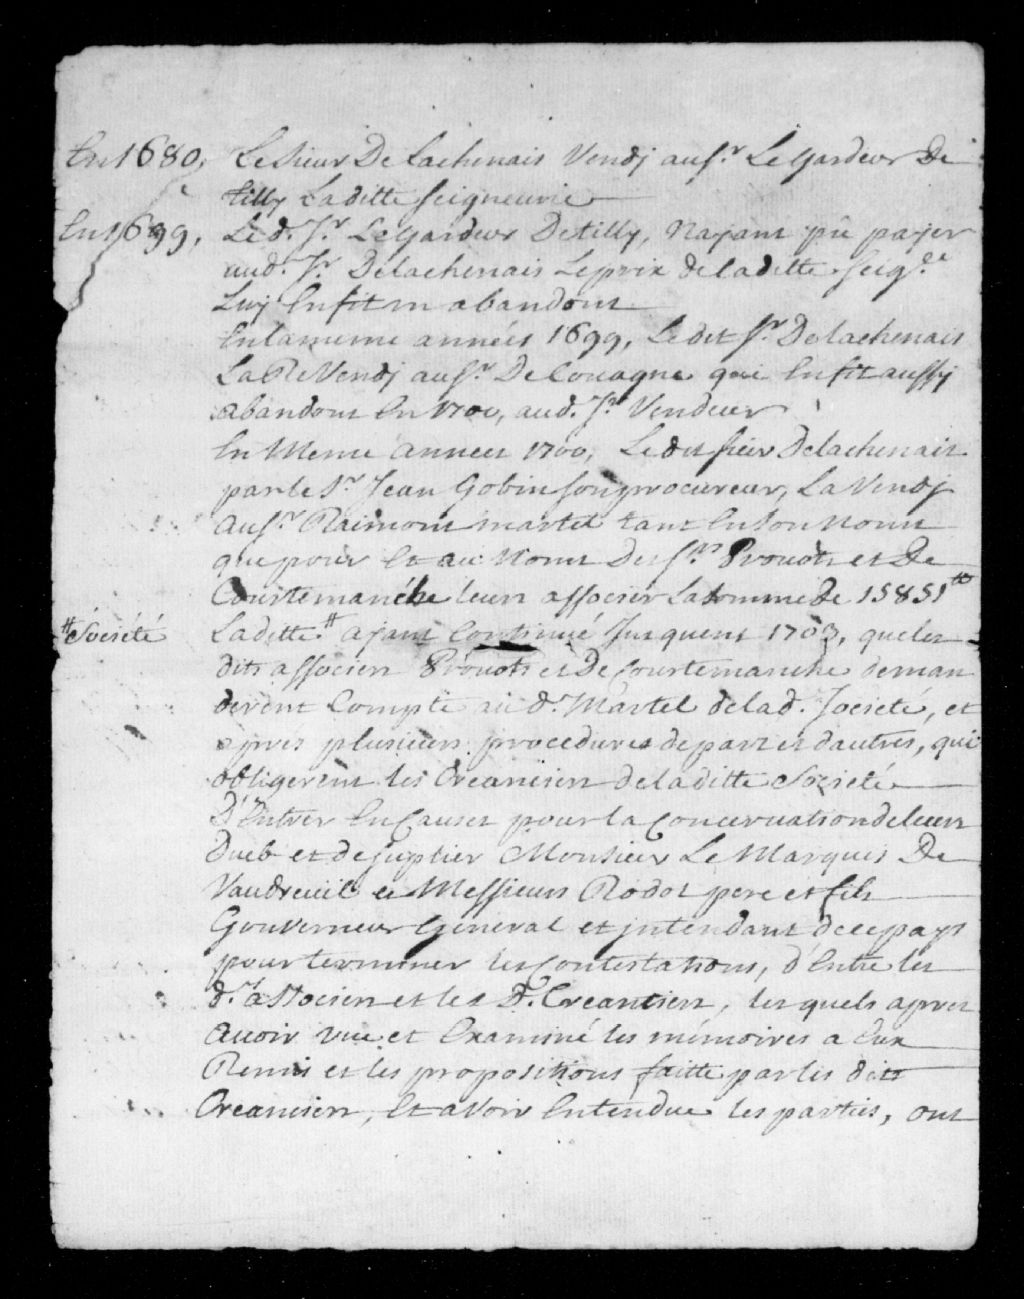 En 1680, Le Sieur De Lachenais Vendj au Sr. Le Gardeur De
Tilly Laditte Seigneurie
En 1699, Le d. Sr. Le Gardeur De Tilly, Nayant pû payer
aud. Sr. Delachenais Le prix deladitte Seig.rie
Luy En fit un abandont
En la meme années 1699, Le dit Sr. De lachenais
La ReVendj au Sr. De Couagne qui En fit aussy
abandont En 1700, aud. Sr. Vendeur
En Meme année 1700, Le dit Sieur Delachenais
par le Sr. Jean Gobin son procureur, La Vendj
au Sr. Raimont martel tant En son Nomt
que pour Et au Nomt Des Srs. Prouots et De
Courtemanche leurs associer La somme de 15851tt
#Société
Laditte# ajant Continué Jusquent 1703, queles
dits associers Prouots et De Courtemanche deman
derent Compte au d. Martel delad. Societé, et
apres plusieurs procedures de part et dautres, qui
obligerent les Creancien deladitte Société
D'Entrer En Causes pour la Concervation de leurs
dueb et de suplier Monsieur Le Marquis De
Vaudreuil et Messieurs Rodot pere et fils
Gouverneur General et jntendant de ce pays
pour terminer les Contestations, d'Entre les
d.ts associers et les d.ts Creancien, les quels apres
avoir vue et Examiné les mémoires a Eux
Remis et les propositions faitte par les dits
Creancien, Et avoir Entendue les parties, ont